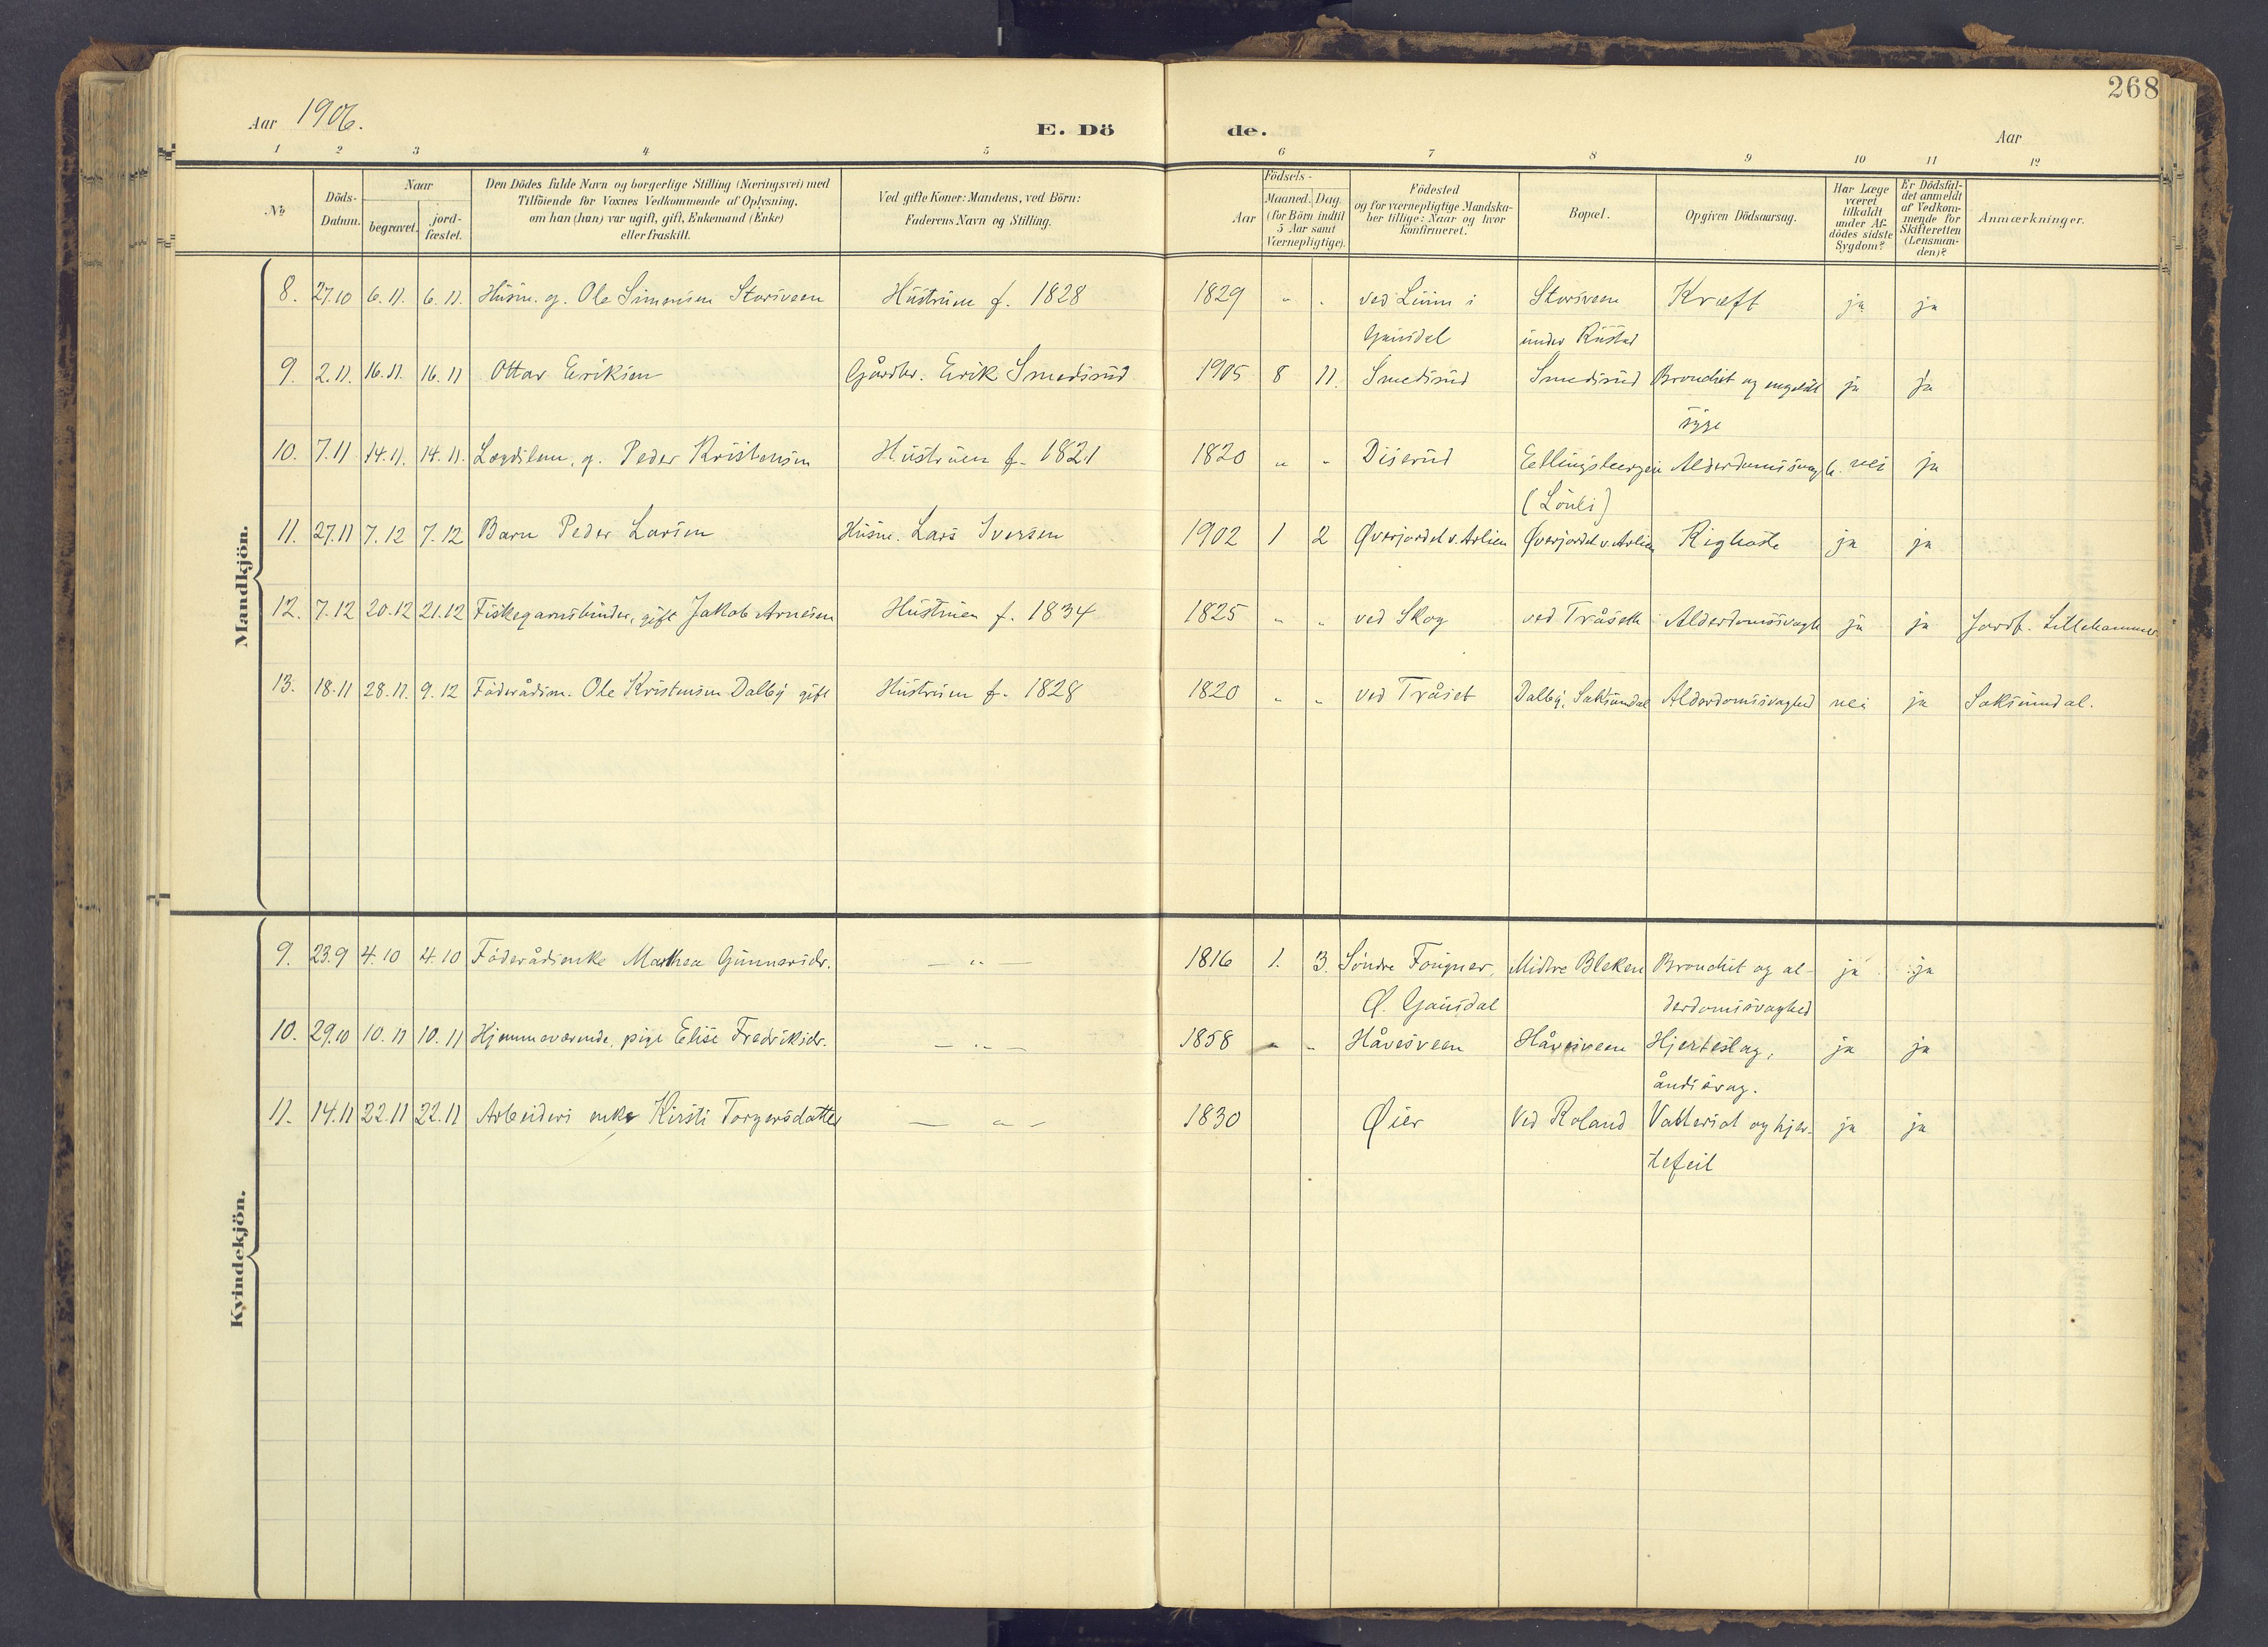 268
Aar 1906.
E. Dö de.
Aar
1 2 3 4 5 6 7 8 9 10 11 12
№
Döds-Datum.
Naar
begravet.
jord-fæstet.
Den Dödes fulde Navn og borgerlige Stilling (Næringsvei) med
Tilföiende for Voxnes Vedkommende af Oplysning,
om han (hun) var ugift, gift, Enkemand (Enke)
eller fraskilt.
Ved gifte Koner: Mandens, ved Börn:
Faderens Navn og Stilling.
Födsels-
Aar
Maaned. Dag.
(for Börn indtil
5 Aar samt
Værnepligtige).
Födested
og for værnepligtige Mandska-
ber tillige: Naar og hvor
konfirmeret.
Bopæl.
Opgiven Dödsaarsag.
Har Læge
været
tilkaldt
under Af-
dödes sidste
Sygdom?
Er Dödsfal-
det anmeldt
af Vedkom-
mende for
Skifteretten
(Lensman-
den)?
Anmærkninger.
Mandkjön.
8. 27.10 6.11. 6.11. Husm. g. Ole Simensen Storsveen Hustruen f. 1828 1829 " " ved Luim i Storsveen Kræft ja ja
Gausdal under Rustad
9. 2.11. 16.11. 16.11 Ottar Eriksen Gårdbr. Erik Smedsrud 1905 8 11. Smedsrud Smedsrud Bronchit og engelsk ja ja
syge
10. 7.11 14.11. 14.11. Lægdslem, g. Peder Kristensen Hustruen f. 1821 1820 " " Diserud Alderdomssvagh. nei ja
(Lönli)
11. 27.11 7.12 7.12 Barn Peder Larsen Husm. Lars Iversen 1902 1 2 Øverjordet v. Arlien Øverjordet v. Arlien Kighoste ja ja
12. 7.12 20.12 21.12 Fiskegarnsbinder, gift Jakob Arnesen Hustruen f. 1834 1825 " " ved Skog ved Tråseth Alderdomssvagh ja ja Jordf. Lillehammer
13. 18.11 28.11. 9.12 Föderådsm. Ole Kristensen Dalby gift Hustruen f. 1828 1820 " " ved Tråset Dalby, Saksumdal Alderdomssvaghed nei ja Saksumdal.
Kvindekjön.
9. 23.9 4.10 4.10 Föderådsenke Mathea Gunnarsdr. — " — 1816 1. 3. Söndre Fougner, Midtre Bleken Bronchit og al- ja ja
Ø. Gausdal derdomssvaghed
10. 29.10 10.11 10.11 Hjemmeværende, pige Elise Fredriksdr. — " — 1858 " " Håvesveen Håvesveen Hjerteslag, ja ja
åndssvag.
11. 14.11 22.11 22.11 Arbeiders enke Kirsti Torgersdatter — " — 1830 Øier Ved Roland Vattersot og hjer- ja ja
tefeil